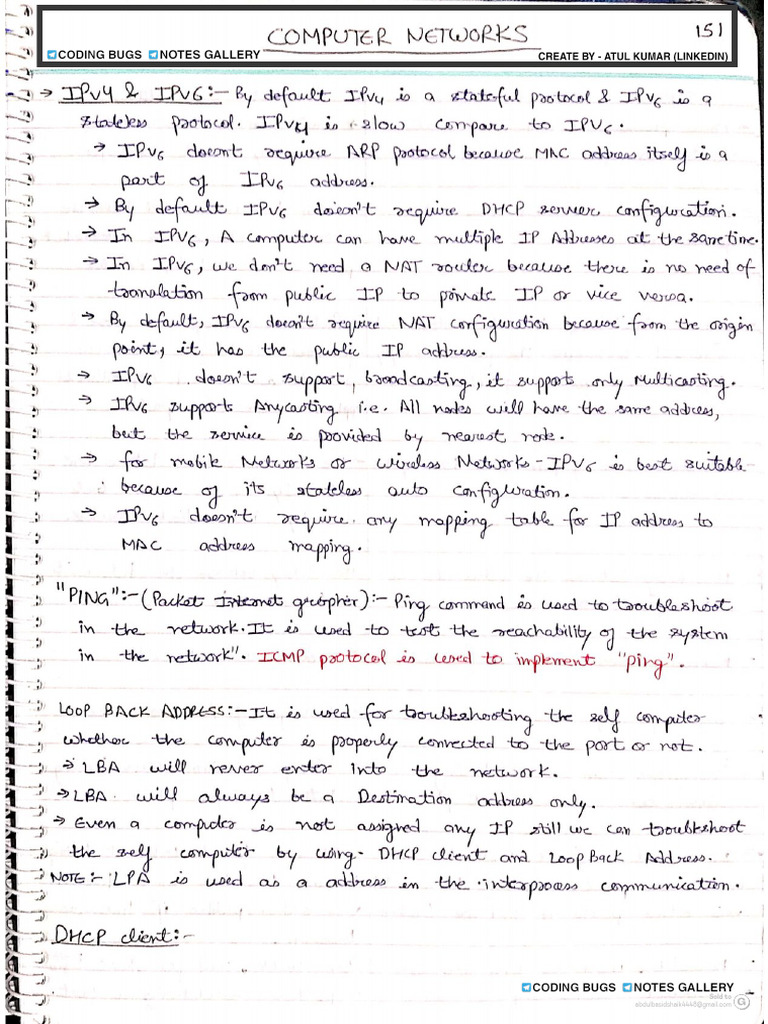 COMPUTER NETWORKS
151
CODING BUGS NOTES GALLERY
CREATE BY - ATUL KUMAR (LINKEDIN)
→ IPv4 & IPv6:- By default IPv4 is a stateful protocol & IPv6 is a
stateless protocol. IPv4 is slow compare to IPv6.
→ IPv6 doesnt require ARP protocol because MAC address itself is a
part of IPv6 address.
→ By default IPv6 doesn't require DHCP server configuration.
→ In IPv6, A computer can have multiple IP Addresses at the same time.
→ In IPv6, we don't need a NAT router because there is no need of
translation from public IP to private IP or vice versa.
→ By default, IPv6 doesn't require NAT configuration because from the origin
point, it has the public IP address.
→ IPv6 doesn't support, broadcasting, it support only Multicasting.
→ IPv6 support Anycasting i.e. All nodes will have the same address,
but the service is provided by nearest node.
→ for mobile Networks or wireless Networks - IPv6 is best suitable
because of its stateless auto configuration.
→ IPv6 doesn't require any mapping table for IP address to
MAC address mapping.
"PING":- (Packet Internet gropher):- Ping command is used to troubleshoot
in the network. It is used to test the reachability of the system
in the network". ICMP protocol is used to implement "ping".
LOOP BACK ADDRESS:- It is used for troubleshooting the self computer
whether the computer is properly connected to the port or not.
→ LBA will never enter into the network.
→ LBA will always be a Destination address only.
→ Even a computer is not assigned any IP still we can troubleshoot
the self computer by using DHCP client and Loop Back Address.
NOTE:- LPA is used as a address in the interprocess communication.
DHCP client:-
CODING BUGS NOTES GALLERY
Sold to
abdulbasidshaik4448@gmail.com